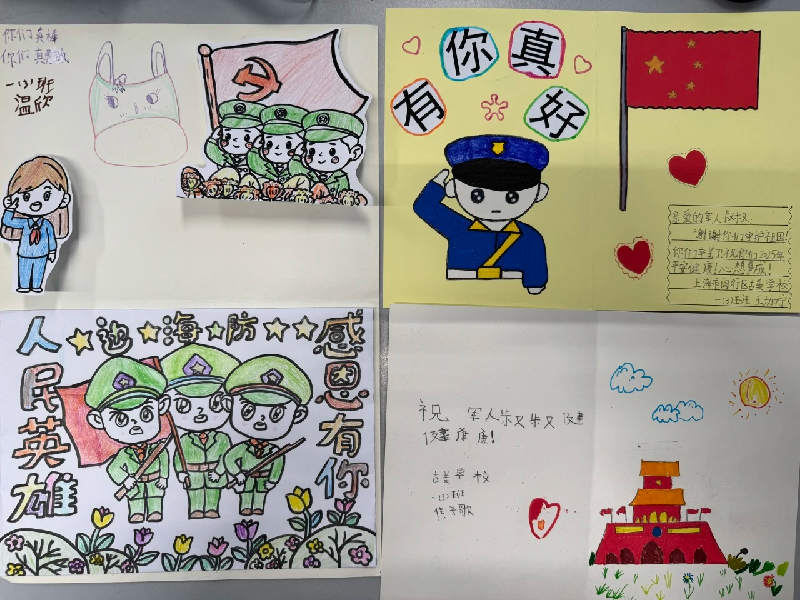 你们真棒
你们真勇敢
一(3)班
温欣
有你真好
亲爱的军人叔叔:
谢谢你们守护祖国!
你们辛苦了!祝你们2025年
平安健康!心想事成!
上海市闵行区古美学校
人民英雄
边海防
感恩有你
祝 军人叔叔 健
健康!
古美学校